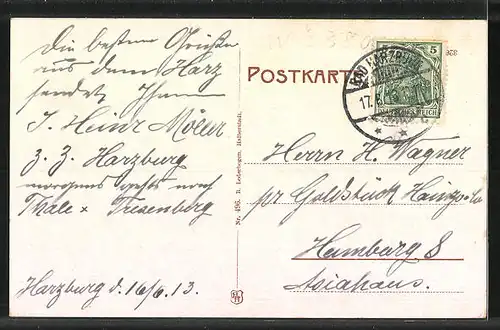 Die besten Grüße
aus dem Harz
sendet Ihnen
J. Heinr Möller
z. Z. Harzburg
morgens gehts nach
Thale x Treseburg
Harzburg d. 16/6.13.
Nr. 496. R. Lederbogen, Halberstadt.
POSTKARTE
BAD HARZBURG
17.6
5
DEUTSCHES REICH
Herrn H. Wagner
pr Goldstück Hainzé & Co
Hamburg 8
Asiahaus.